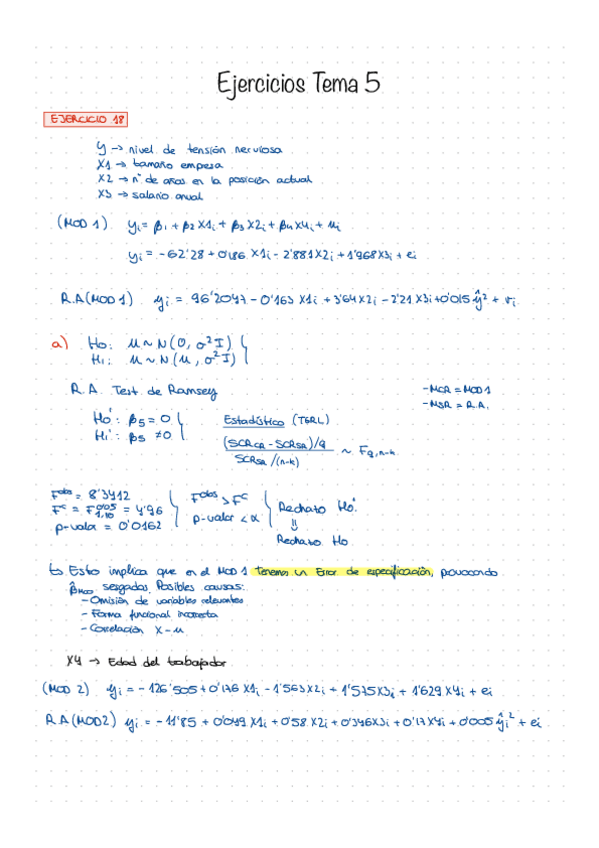 Ejercicios Tema 5
EJERCICIO 18
y → nivel de tensión nerviosa
X1 → tamaño empresa
X2 → nº de años en la posición actual
X3 → salario anual
(MOD 1) yi = β1 + β2 X1i + β3 X2i + β4 X4i + ui
yi = -62'28 + 0'186 X1i - 2'881 X2i + 1'968 X3i + ei
R.A (MOD 1) yi = 96'2047 - 0'163 X1i + 3'64 X2i - 2'21 X3i + 0'015 ŷ² + vi
a) Ho: u ~ N(0, σ²I)
H1: u ~ N(u, σ²I)
R.A. Test de Ramsey
-MCR = MOD 1
-MSR = R.A.
Ho': β5 = 0
H1': β5 ≠ 0
Estadístico (TGRL)
(SCRCR - SCRSR)/q
SCRSR/(n-k)
~ Fq,n-k
Fobs = 8'3412
Fc = F0'05 1,10 = 4'96
p-valor = 0'0162
Fobs > Fc
p-valor < α
Rechazo Ho'.
⇓
Rechazo Ho
↳ Esto implica que en el MOD 1 tenemos un Error de especificación, provocando
β̂MCO sesgados. Posibles causas:
- Omisión de variables relevantes
- Forma funcional incorrecta
- Correlación X-u
X4 → Edad del trabajador
(MOD 2) yi = -126'505 + 0'176 X1i - 1'563 X2i + 1'575 X3i + 1'629 X4i + ei
R.A (MOD 2) yi = -11'85 + 0'049 X1i + 0'58 X2i + 0'346 X3i + 0'17 X4i + 0'005 ŷi² + ei